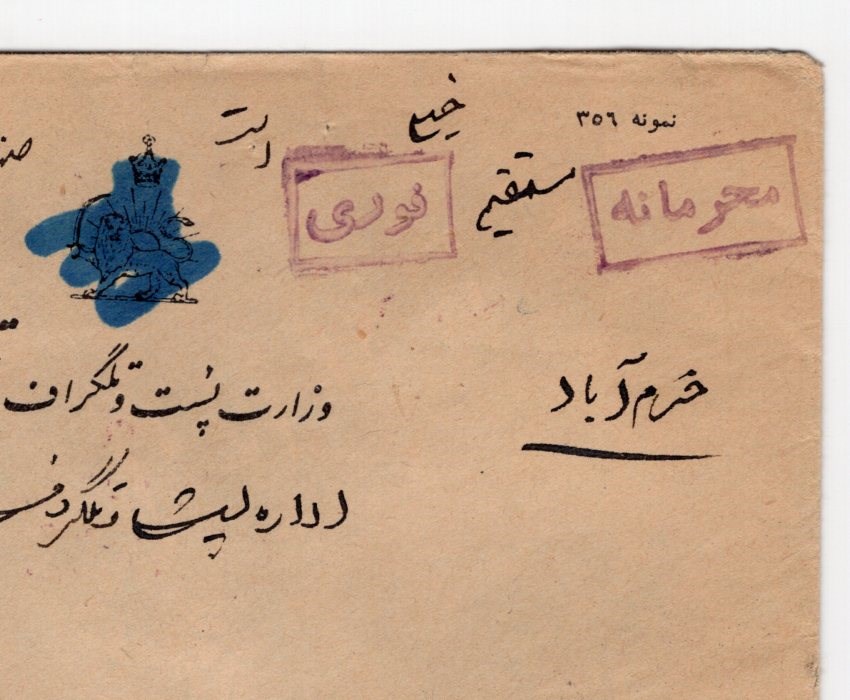 نمونه ۳۵٦
خیلی
محرمانه
مستقیم
فوری
است
خرم آباد
وزارت پست و تلگراف
اداره پست و تلگراف